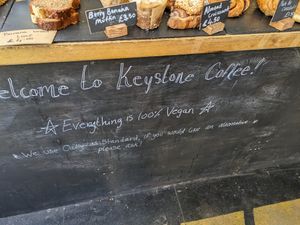 Berry Banana
Muffin £3.50
Banana
Loaf
Almond
Croissant
£4.50
Welcome to Keystone Coffee!
☆ Everything is 100% Vegan ☆
* We use Oatly as Standard, if you would like an alternative
please ask!